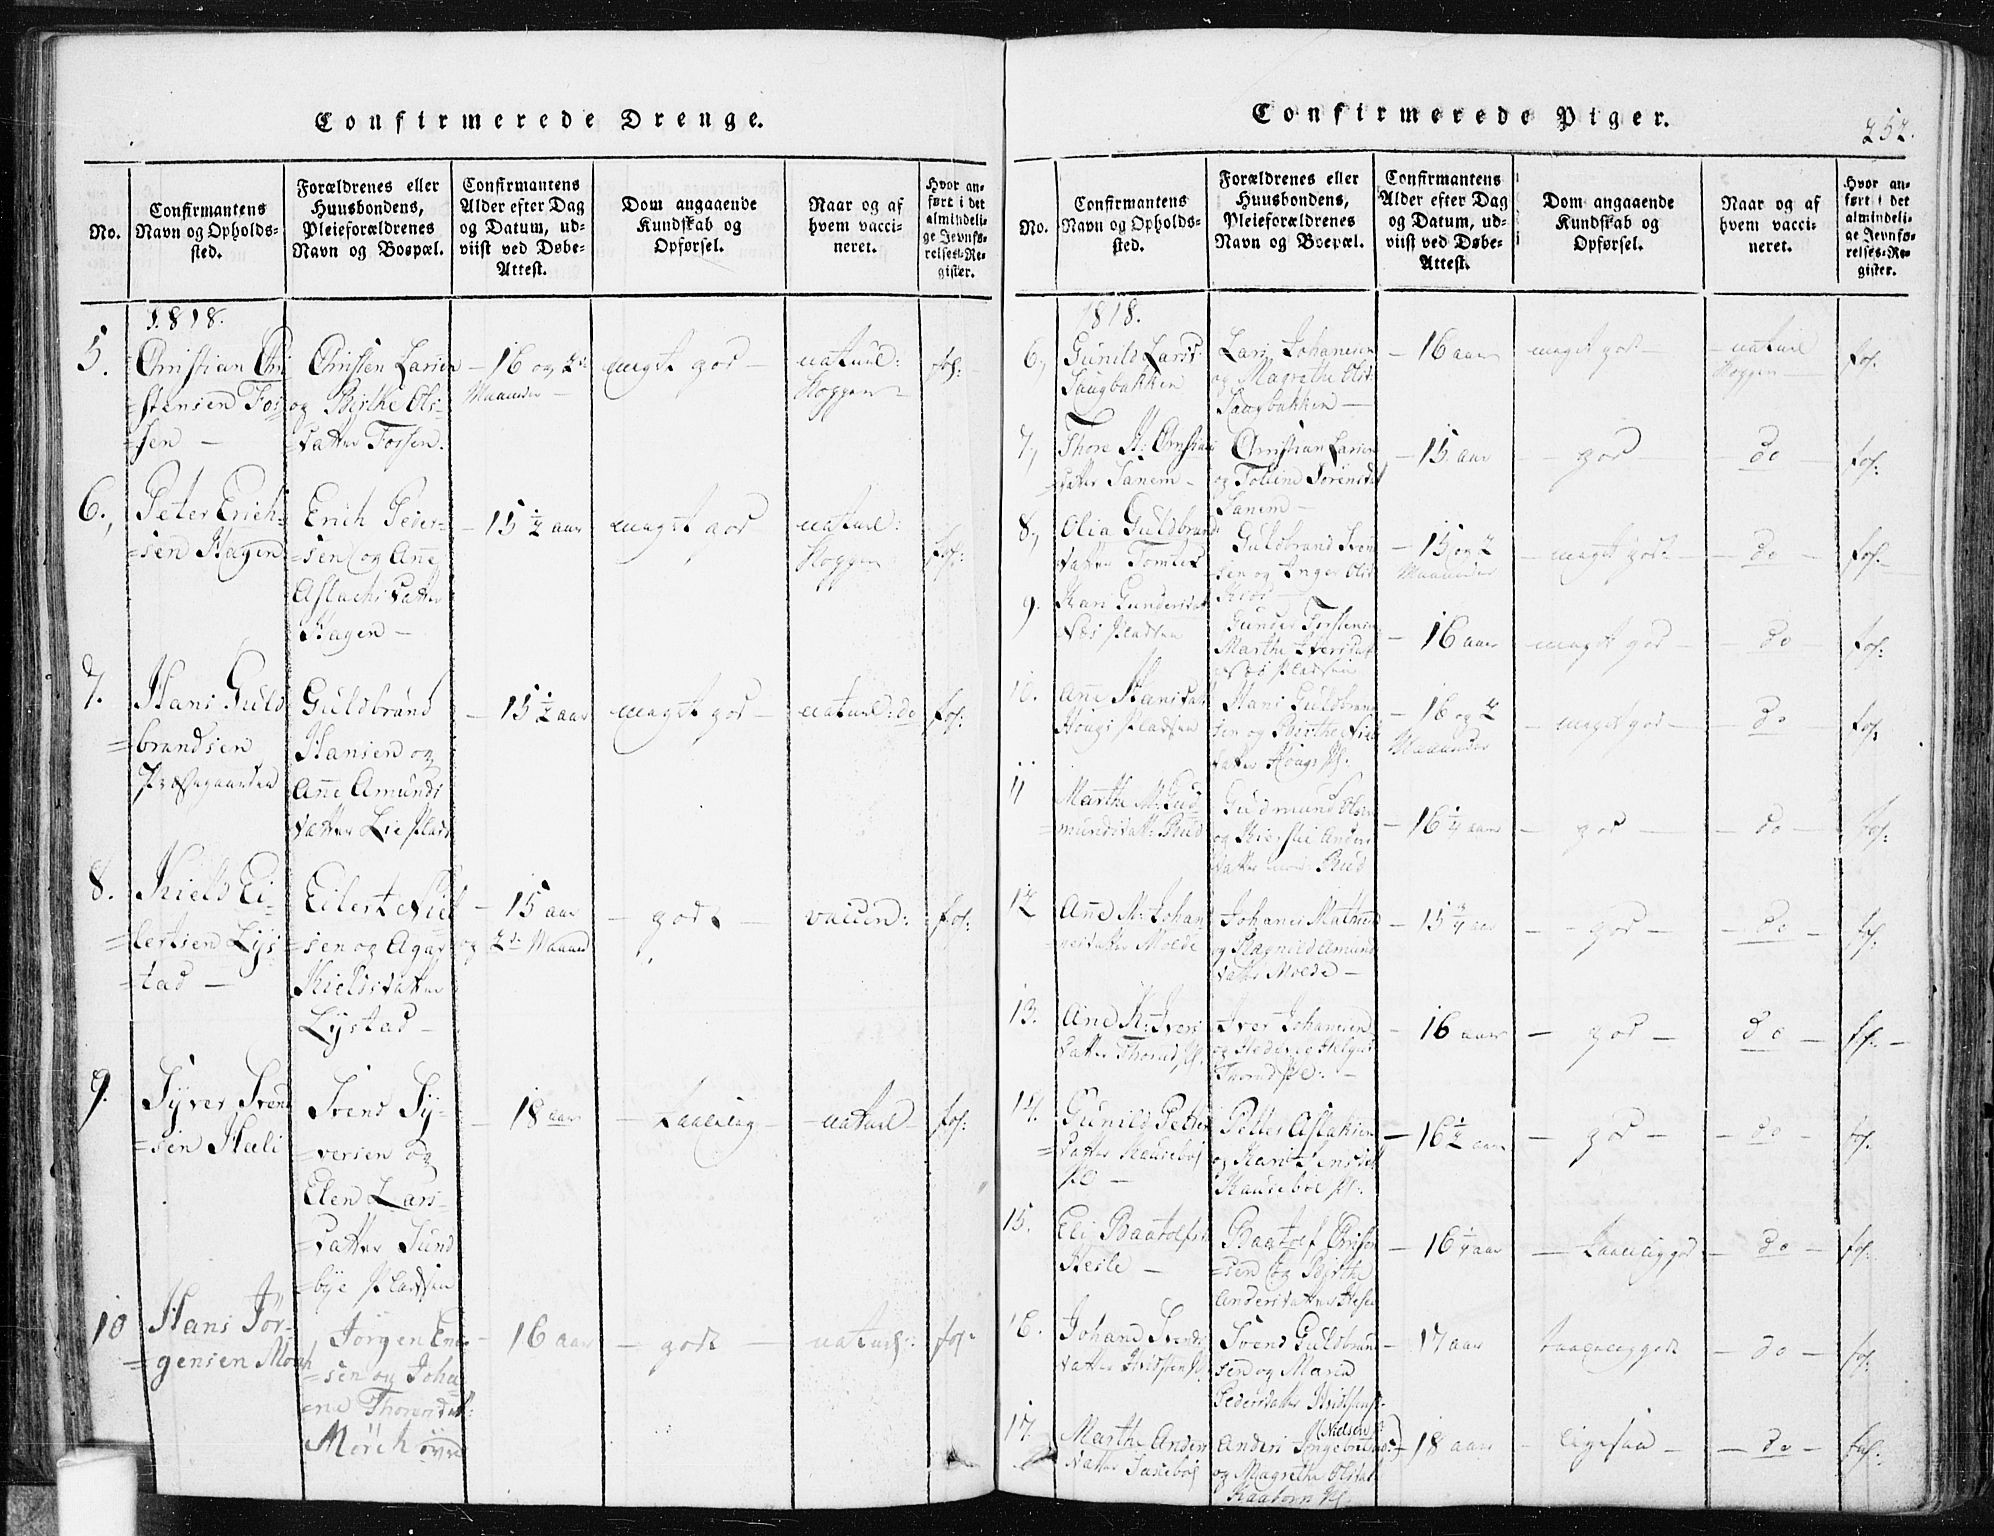 Confirmerede Drenge.
No.
Confirmantens
Navn og Opholds-
sted.
Forældrenes eller
Huusbondens,
Pleieforældrenes
Navn og Bospæl.
Confirmantens
Alder efter Dag
og Datum, ud-
viist ved Døbe-
Attest.
Dom angaaende
Kundskab og
Opførsel.
Naar og af
hvem vacci-
neret.
Hvor an-
ført i det
almindeli-
ge Jevnfø-
relses-Re-
gister.
1818.
5.
Christian Chri
=stensen Fos-
sen —
Christen Larsen
og Birthe Ols-
=datter Fossen.
— 16 og 2
Maaneder —
meget god —
naturl:
Kopper —
fol:
6.
Peter Erich-
=sen Hagen
Erich Peder-
=sen og Ane
Aslachsdatter
Hagen —
— 15 ½ aar
meget god
naturl:
Kopper
fol:
7.
Hans Guld
=brandsen
Præstegaarden
Guldbrand
Hansen og
Ane Amunds
datter Lie Plads
— 15 ½ aar
meget god —
naturl: do
fol:
8.
Kield Ei-
=lertsen Lys
=tad —
Eilert Niel
=sen og Agat
Kieldsdatter
Lystad —
— 15 aar
og 2 Maaned
— god —
vaccin:
fol:
9.
Syver Svend
=sen Hæli
Svend Sy-
=versen og
Elen Lars-
=datter Sund
=bye Pladsen
— 18 aar
— taalelig
— naturl —
fol:
10
Hans Jør-
=gensen Mørch
Jørgen Ene-
=sen og Joha-
ne Thoresdat:
Mørch øvre
— 16 aar
— godt —
naturl:
fol:
Confirmerede Piger.
252.
No.
Confirmantens
Navn og Opholds-
sted.
Forældrenes eller
Huusbondens,
Pleieforældrenes
Navn og Bospæl.
Confirmantens
Alder efter Dag
og Datum, ud-
viist ved Døbe-
Attest.
Dom angaaende
Kundskab og
Opførsel.
Naar og af
hvem vacci-
neret.
Hvor an-
ført i det
almindeli-
ge Jevnfø-
relses-Re-
gister.
1818.
6.
Gunild Larsd:
Saugbakken
Lars Johanesen
og Magrethe Olsd:
Saugbakken —
— 16 aar
meget god —
— naturl
Kopper —
fol:
7.
Thore M: Christians
=datter Sanem —
Christian Larsen
og Sørensdat
Sanem —
— 15 aar
— god —
— do —
fol:
8.
Olia Guldbrands
datter Tomter
Guldbrand Sven
sen og Inger Olsd
— 15 og 2
Maaneder
— meget godt —
— do —
fol:
9.
Kari Gundersdat
Næs Pladsen
Gunder Torstensen
Marthe Iversdat
Næs Pladsen
— 16 aar
meget god —
— do
fol:
10.
Ane Hansdat
Hougs Pladsen
Hans Guldbrand
sen og Birthe Niels
datter Hougs Pl.
— 16 og 2
Maaneder
— meget god —
— do —
fol:
11
Marthe M: Gud
mundsdatt: Rud
Gudmund Olsen
og Anders
datter Rud
— 16 ¼ aar
— god —
— do —
fol:
12
Ane M: Johan
=nesdatter Moede
Johanes
og Ragnild Amunds
datter Moede —
— 15 ¾ aar
— god —
— do —
fol:
13.
Ane K: Ivers
datter Thorud Pl.
Iver Johanesen
og
Thorud Pl: —
— 16 aar
— god —
do
fol: —
14.
Gunild Petters
=datter Kausebøl
Pl —
Petter Aslaksen
og Kari Jensdat
Kausebøl Pl:
— 16 ½ aar
— god —
— do —
fol:
15.
Eli Baatolfsd
Hesle —
Baatolf Christen
=sen og Birthe
Andersdatter Hesle
— 16 ¼ aar
— taaleliggod
— do —
fol:
16.
Johane Svends
datter
Svend Guldbrand
sen og Maria
Pedersdatter
— 17 aar
taaleliggodt
— do —
fol:
17.
Marthe Anders
datter
(Nielsen)
Anders Ingebretsen
og Magrethe Olsdat
Pl.
— 18 aar
— ligesaa —
— do —
fol: